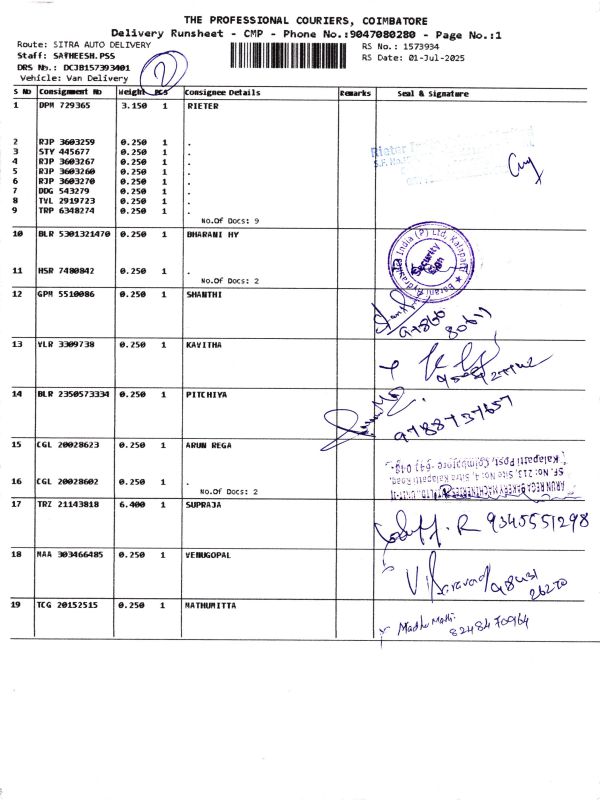 THE PROFESSIONAL COURIERS, COIMBATORE
Delivery Runsheet - CMP - Phone No.:9047080280 - Page No.:1
Route: SITRA AUTO DELIVERY
RS No.: 1573934
Staff: SATHEESH.PSS
RS Date: 01-Jul-2025
DRS No.: DCJB157393401
Vehicle: Van Delivery
2
S No Consignment No Weight PCS Consignee Details Remarks Seal & Signature
1 DPM 729365 3.150 1 RIETER
2 RJP 3603259 0.250 1 .
3 STY 445677 0.250 1 .
4 RJP 3603267 0.250 1 .
5 RJP 3603260 0.250 1 .
6 RJP 3603270 0.250 1 .
7 DDG 543279 0.250 1 .
8 TVL 2919723 0.250 1 .
9 TRP 6348274 0.250 1 .
No.Of Docs: 9
Rieter
10 BLR 5301321470 0.250 1 BHARANI HY
11 HSR 7480842 0.250 1 .
No.Of Docs: 2
India (P) Ltd, Kalapatti
Security
Sign
12 GPM 5510086 0.250 1 SHANTHI
13 VLR 3309738 0.250 1 KAVITHA
14 BLR 2350573334 0.250 1 PITCHIYA
9788737657
15 CGL 20028623 0.250 1 ARUN REGA
16 CGL 20028602 0.250 1 .
No.Of Docs: 2
ARUN REGA BAKERY MACHINERIES LTD., UNIT-II
SF. No: 213, Site No. 4, Kalapatti Road,
Kalapatti Post, Coimbatore - 641 048.
17 TRZ 21143818 6.400 1 SUPRAJA
R 9345551298
18 MAA 303466485 0.250 1 VENUGOPAL
19 TCG 20152515 0.250 1 MATHUMITTA
8248470964